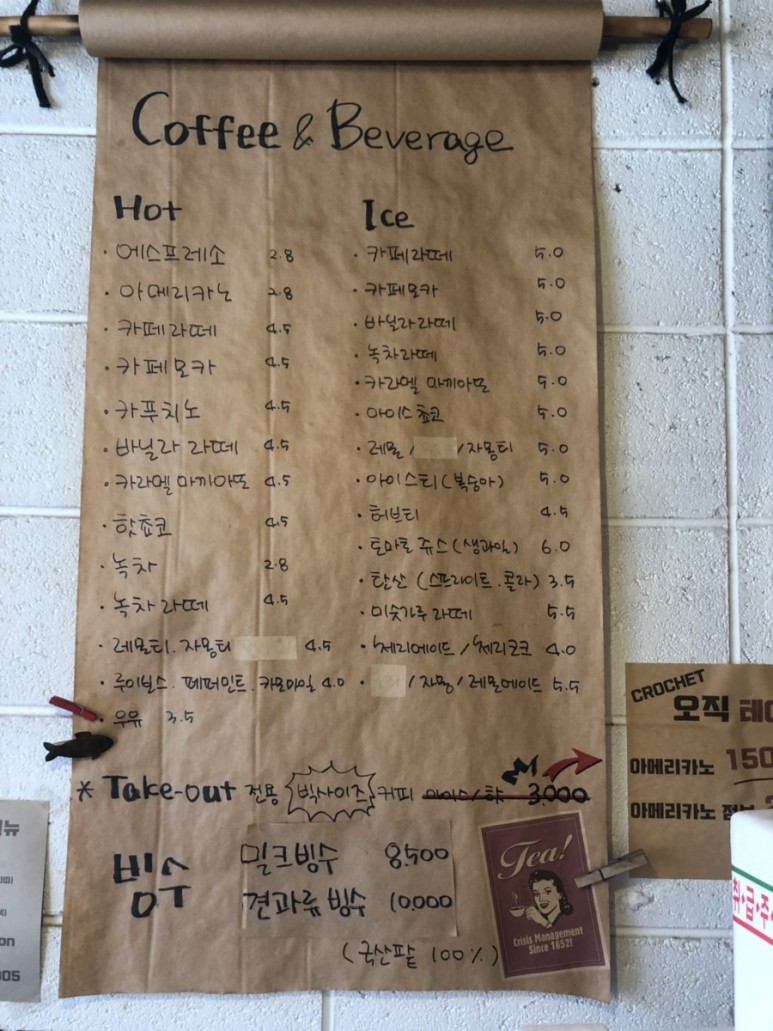 Coffee & Beverage
Hot
· 에스프레소 2.8
· 아메리카노 2.8
· 카페라떼 4.5
· 카페모카 4.5
· 카푸치노 4.5
· 바닐라 라떼 4.5
· 카라멜 마끼아또 4.5
· 핫쵸코 4.5
· 녹차 2.8
· 녹차 라떼 4.5
· 레몬티. 자몽티 4.5
· 루이보스. 페퍼민트. 카모마일 4.0
· 우유 3.5
Ice
· 카페라떼 5.0
· 카페모카 5.0
· 바닐라라떼 5.0
· 녹차라떼 5.0
· 카라멜 마끼아또 5.0
· 아이스쵸코 5.0
· 레몬/ /자몽티 5.0
· 아이스티(복숭아) 5.0
· 허브티 4.5
· 토마토 쥬스(생과일) 6.0
· 탄산 (스프라이트.콜라) 3.5
· 미숫가루 라떼 5.5
· 체리에이드/체리코크 4.0
· /자몽/레몬에이드 5.5
* Take-out 전용 빅사이즈 커피 아이스/핫 3.000
빙수
밀크빙수 8,500
견과류 빙수 10,000
(국산팥 100%)
Tea!
Crisis Management
Since 1652!
CROCHET
오직 테
아메리카노 150
아메리카노 점
취·급·주
뉴
on
005